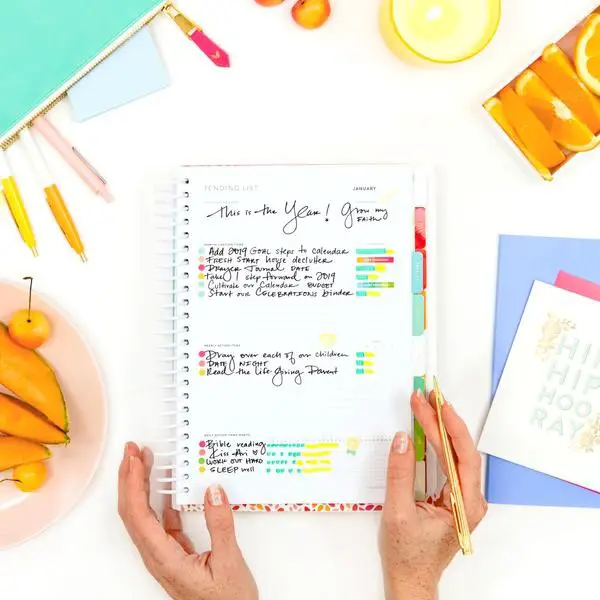 TENDING LIST JANUARY
This is the Year! Grow my FAITH
MONTHLY ACTION ITEMS
Add 2019 GOAL steps to calendar
FRESH START house declutter
PRAYER Journal DATE
take 1 step forward on 2019
Cultivate our Calendar BUDGET
Start our CELEBRATIONS binder
WEEKLY ACTION ITEMS
Pray over each of our children
DATE NIGHT
Read the life-giving Parent
DAILY ACTION ITEMS/HABITS
Bible reading
Kiss Ari
WORK OUT HARD
SLEEP well
HIP
HIP
HOO
RAY